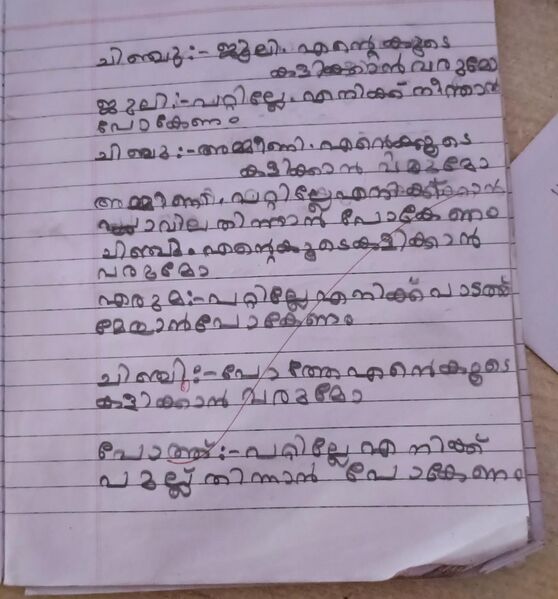 ചിഞ്ചു:- ജൂലി. എന്റെ കൂടെ
കളിക്കാൻ വരുമോ
ജൂലി:- പറ്റില്ലേ. എനിക്ക് നീന്താൻ
പോകേണം
ചിഞ്ചു:- അമ്മിണി. എന്റെകൂടെ
കളിക്കാൻ വരുമോ
അമ്മിണി. പറ്റില്ലേ എനിക്ക്
പ്ലാവില തിന്നാൻ പോകേണം
ചിഞ്ചു. എന്റെകൂടെകളിക്കാൻ
വരുമോ
എരുമ:- പറ്റില്ലേ എനിക്ക് പാടത്ത്
മേയാൻപോകേണം
ചിഞ്ചു:- പോത്തേ എന്റെകൂടെ
കളിക്കാൻ വരുമോ
പോത്ത്:- പറ്റില്ലേ എനിക്ക്
പുല്ല് തിന്നാൻ പോകേണം